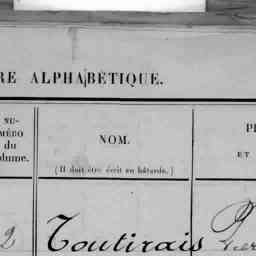 RE ALPHABÉTIQUE.
NU-
MÉRO
du
olume.
NOM.
( Il doit être écrit en bâtarde. )
P
ET
2
Toutirais